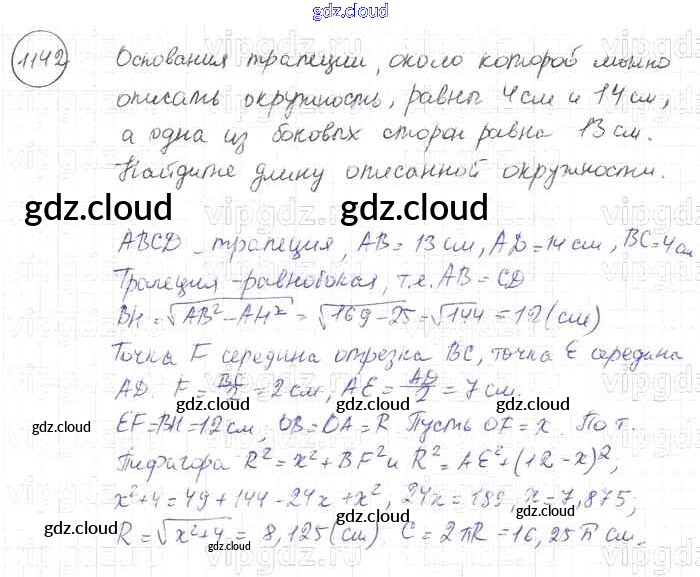 gdz.cloud
1142 Основания трапеции, около которой можно
описать окружность, равны 4 см и 14 см,
а одна из боковых сторон равна 13 см.
Найдите длину описанной окружности.
gdz.cloud gdz.cloud
ABCD – трапеция, AB = 13 см, AD = 14 см, BC = 4 см
Трапеция - равнобокая, т.е. AB = CD
BH = √AB² – AH² = √169 – 25 = √144 = 12 (см)
Точка F середина отрезка BC, точка E середина
AD. F = BC/2 = 2 см, AE = AD/2 = 7 см.
EF = BH = 12 см, OB = OA = R Пусть OF = x. По т.
gdz.cloud gdz.cloud
Пифагора R² = x² + BF² и R² = AE² + (12 – x)²;
x² + 4 = 49 + 144 – 24x + x², 24x = 189, x = 7,875;
gdz.cloud gdz.cloud
R = √x² + 4 = 8,125 (см) C = 2πR = 16,25π см.
gdz.cloud
gdz.cloud